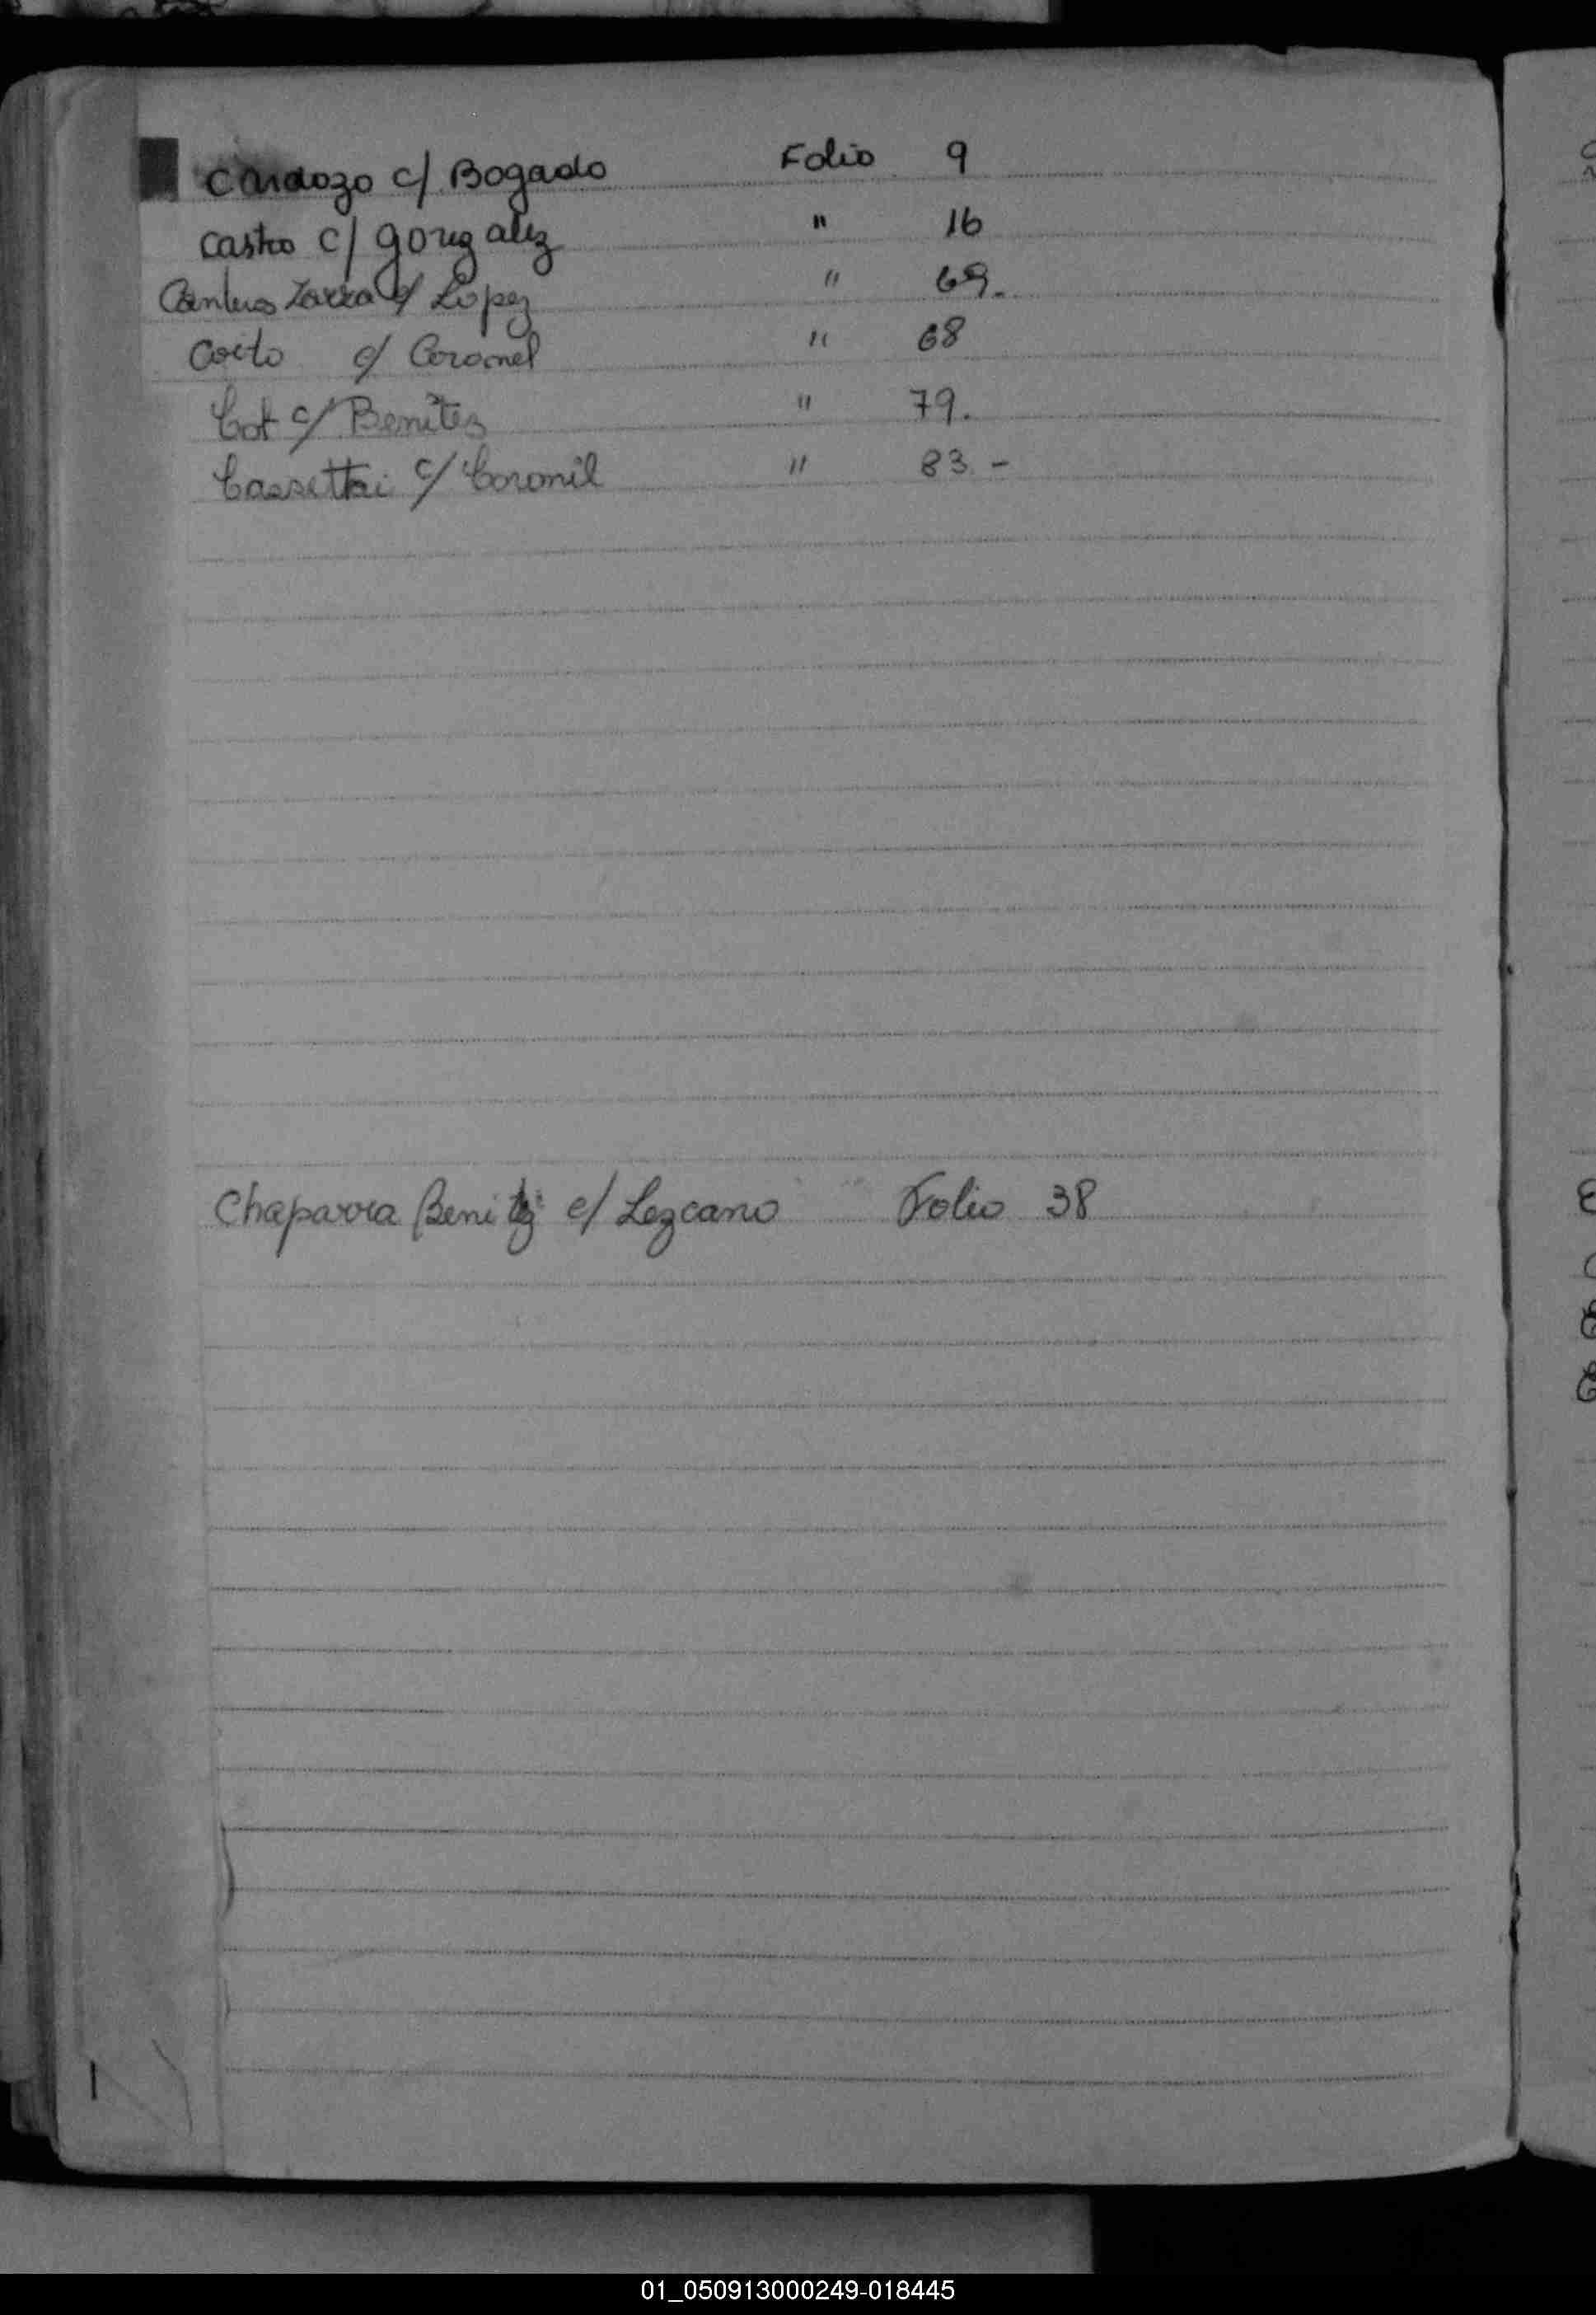 Cardozo c/ Bogado Folio 9
Castro c/ Gonzalez " 16
Canteros Zarza c/ Lopez " 69.
Coito c/ Coronel " 68
Cot c/ Benitez " 79.
Cassettai c/ Coronil " 83 -
Chaparra Benitez c/ Lezcano Folio 38
01_050913000249-018445